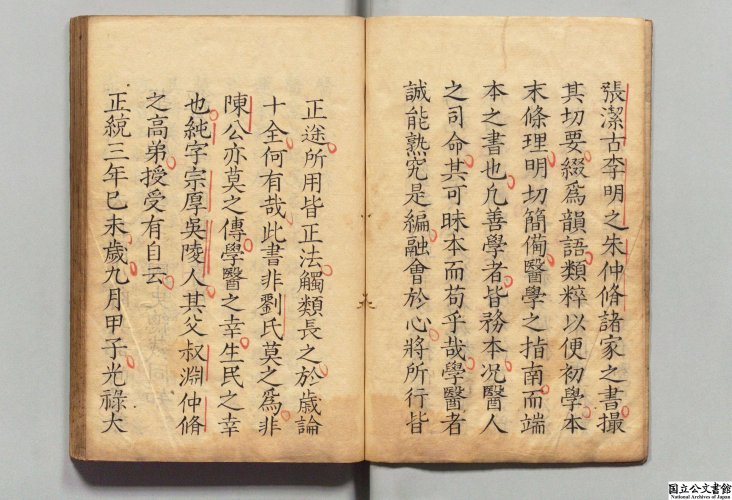 張潔古李明之朱仲脩諸家之書撮
其切要綴爲韻語類粹以便初學本
末條理明切簡備醫學之指南而端
本之書也凡善學者皆務本况醫人
之司命其可昧本而苟乎哉學醫者
誠能熟究是編融會於心將所行皆
正途所用皆正法觸類長之於歳論
十全何有哉此書非劉氏莫之爲非
陳公亦莫之傳學醫之幸生民之幸
也純字宗厚吳陵人其父叔淵仲脩
之高弟授受有自云
正統三年已未歳九月甲子光祿大
国立公文書館
National Archives of Japan